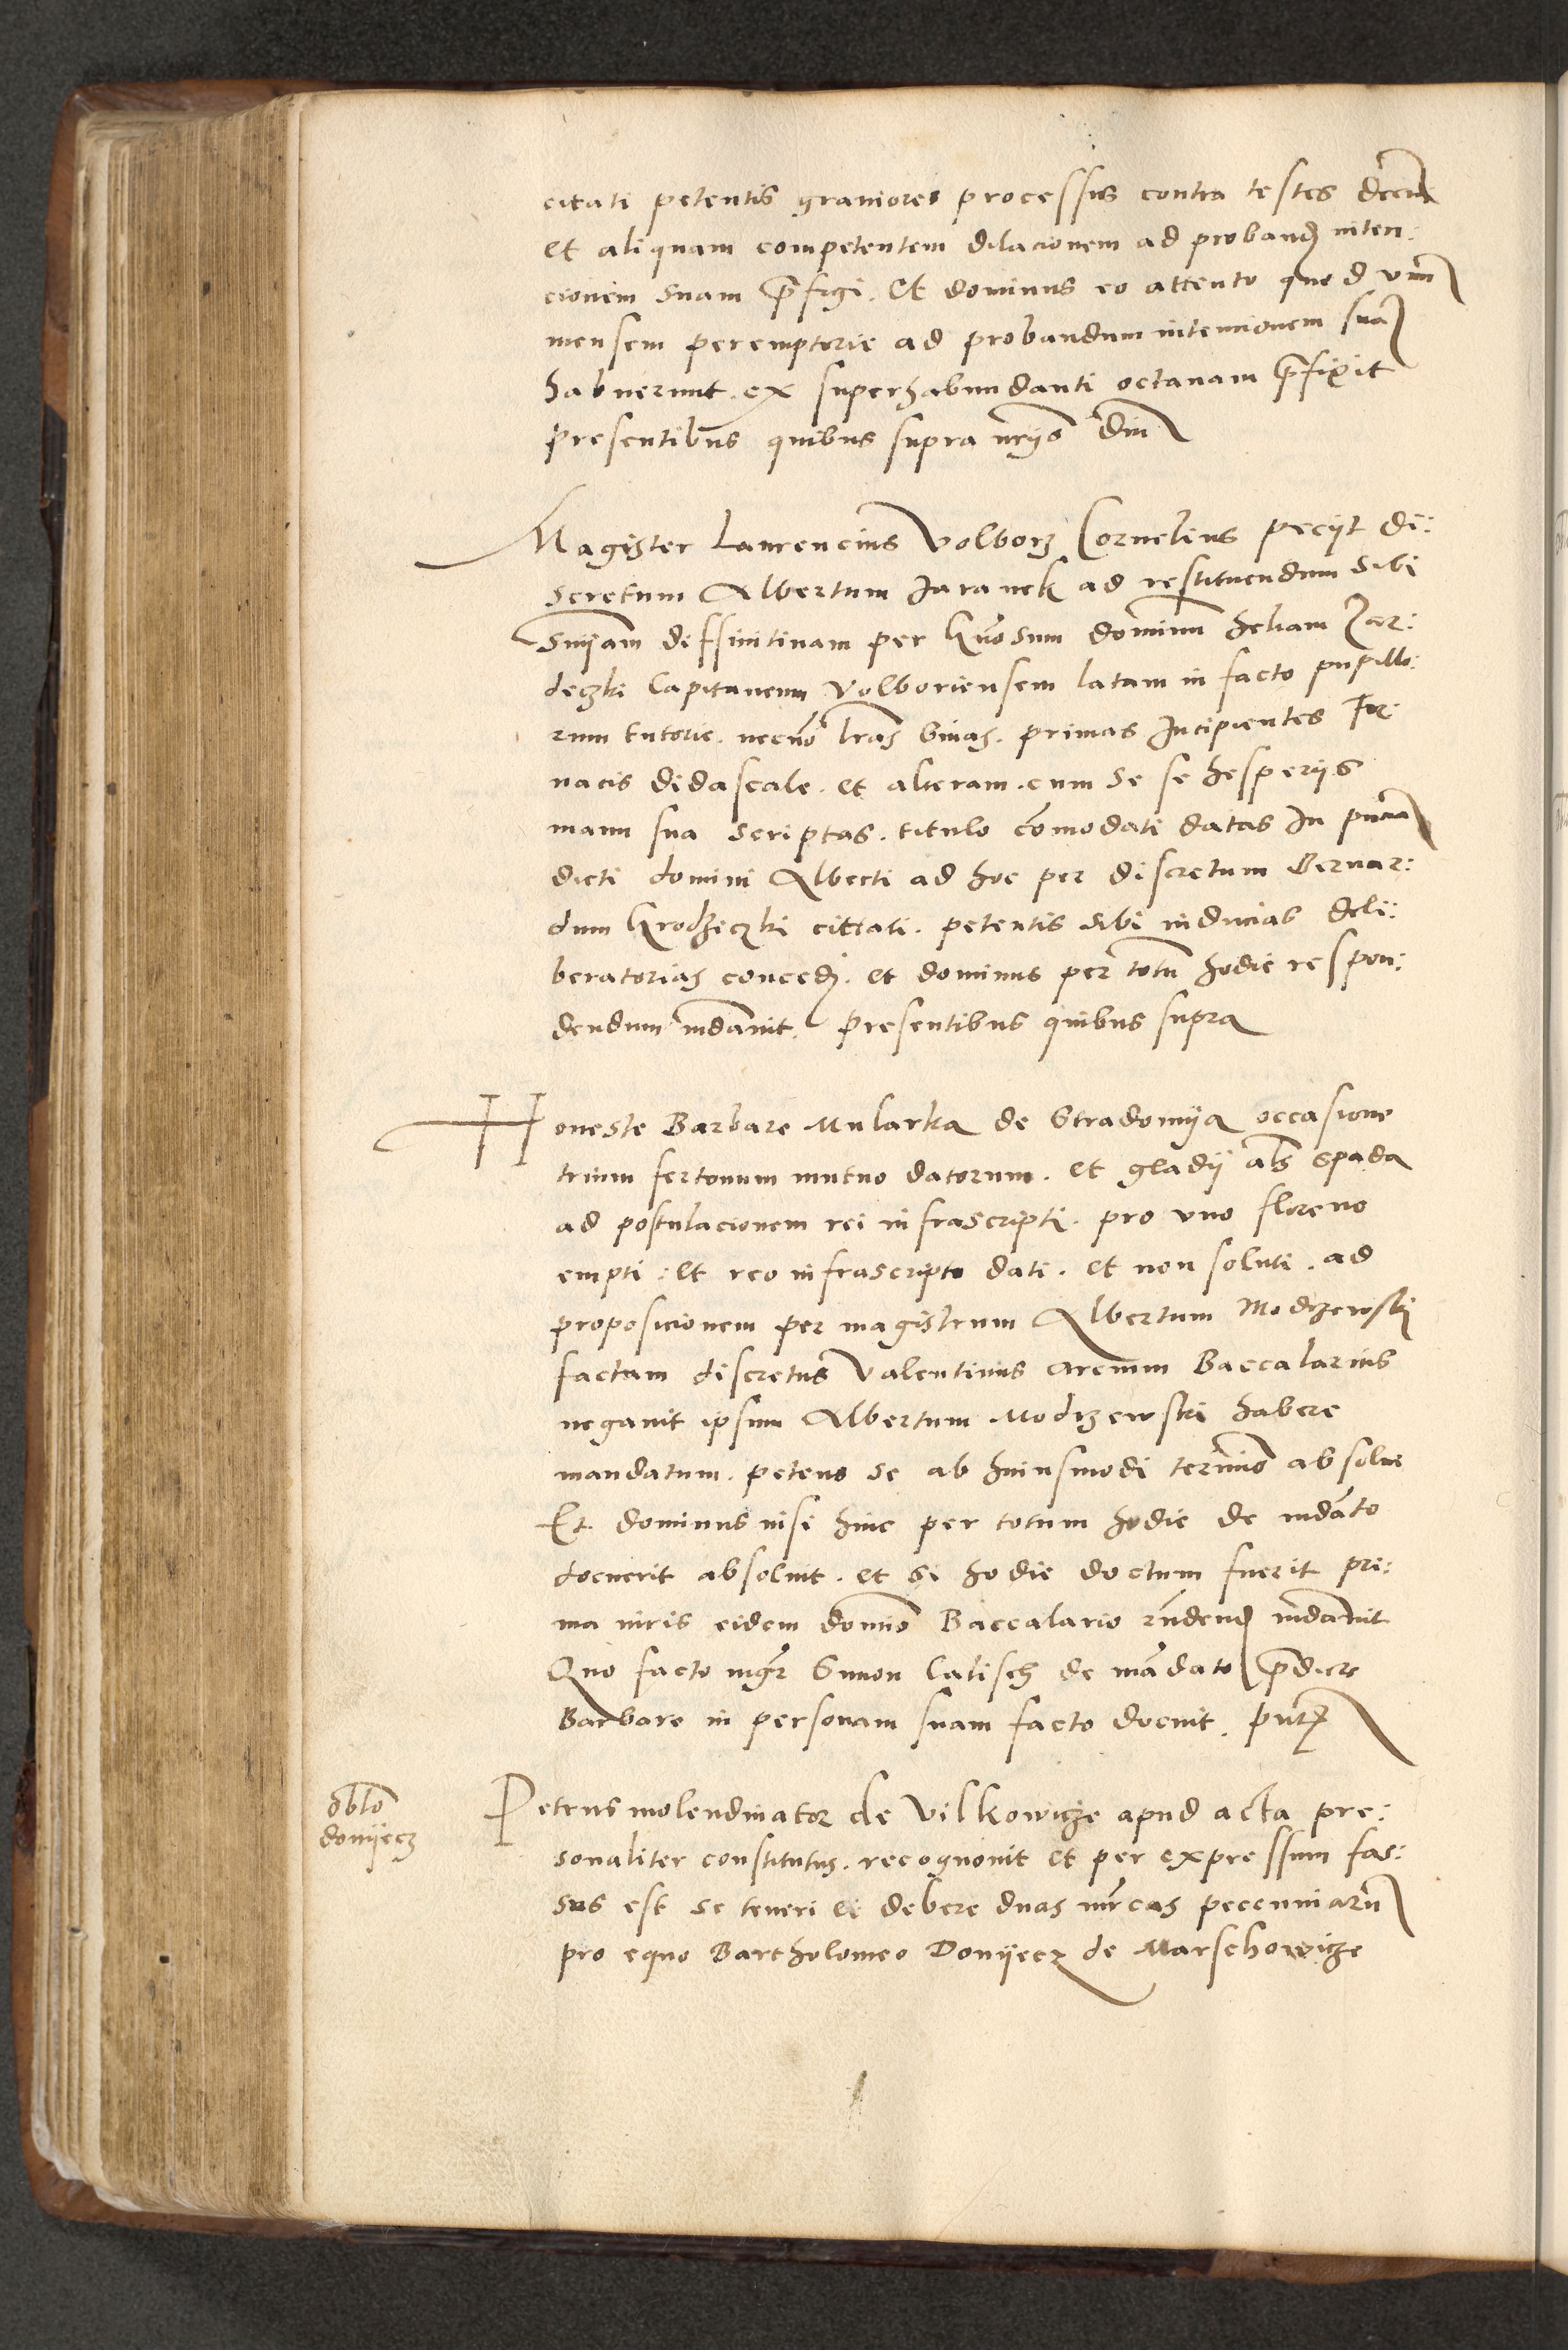 citati petentis graviores processus contra testes decerni
et aliquam competentem dilacionem ad proband inten:
cionem suam prefigi. Et dominus eo attento quod unu
mensem peremptorie ad probandum intencionem sua
habuerunt. ex superhabundanti octavam prefixit
presentibus quibus supra
Magister Laurencius Volborz Cornelius peciit di:
scretum Albertum Jaranek ad restituendum sibi
Sniam diffinitivam per Gnosum dominum Heliam Zar:
deczki Capitaneum Volboriensem latam in facto pupillo:
rum tutorie. necno lras binas. primas Incipientes For
nacis didascale. et alteram. cum se se hesperiis
manu sua scriptas. titulo comodati datas In pncia
dicti domini Alberti ad hoc per discretum Bernar:
dum Grodziczki cittati. petentis sibi inducias deli:
beratorias conced. et dominus per totu hodie respon:
dendum mdavit. presentibus quibus supra
Honeste Barbare Mularka de Stradomya occasione
trium fertonum mutuo datorum. et gladii als spada
ad postulacionem rei infrascripti. pro uno floreno
empti. et reo infrascripto dati. et non soluti. ad
proposicionem per magistrum Albertum Modrzewski
factam discretus Valentinus arcium Baccalarius
negavit ipsum Albertum Modrzewski habere
mandatum. petens se ab huiusmodi termino absolui
Et dominus nisi hinc per totum hodie de mdato
docuerit absolvit. et si hodie doctum fuerit pri:
ma iuris eidem domino Baccalario rndend mdavit
Quo facto mgr Simon Calisch de mandato predicte
Barbare in personam suam facto docuit. pntz
oblo
donyecz
Petrus molendinator de Vilkowicze apud acta pre:
sonaliter constitutus. recognovit et per expressum fas:
sus est se teneri et debere duas mrcas peccuniaru
pro equo Bartholomeo Donyecz de Marschowicze